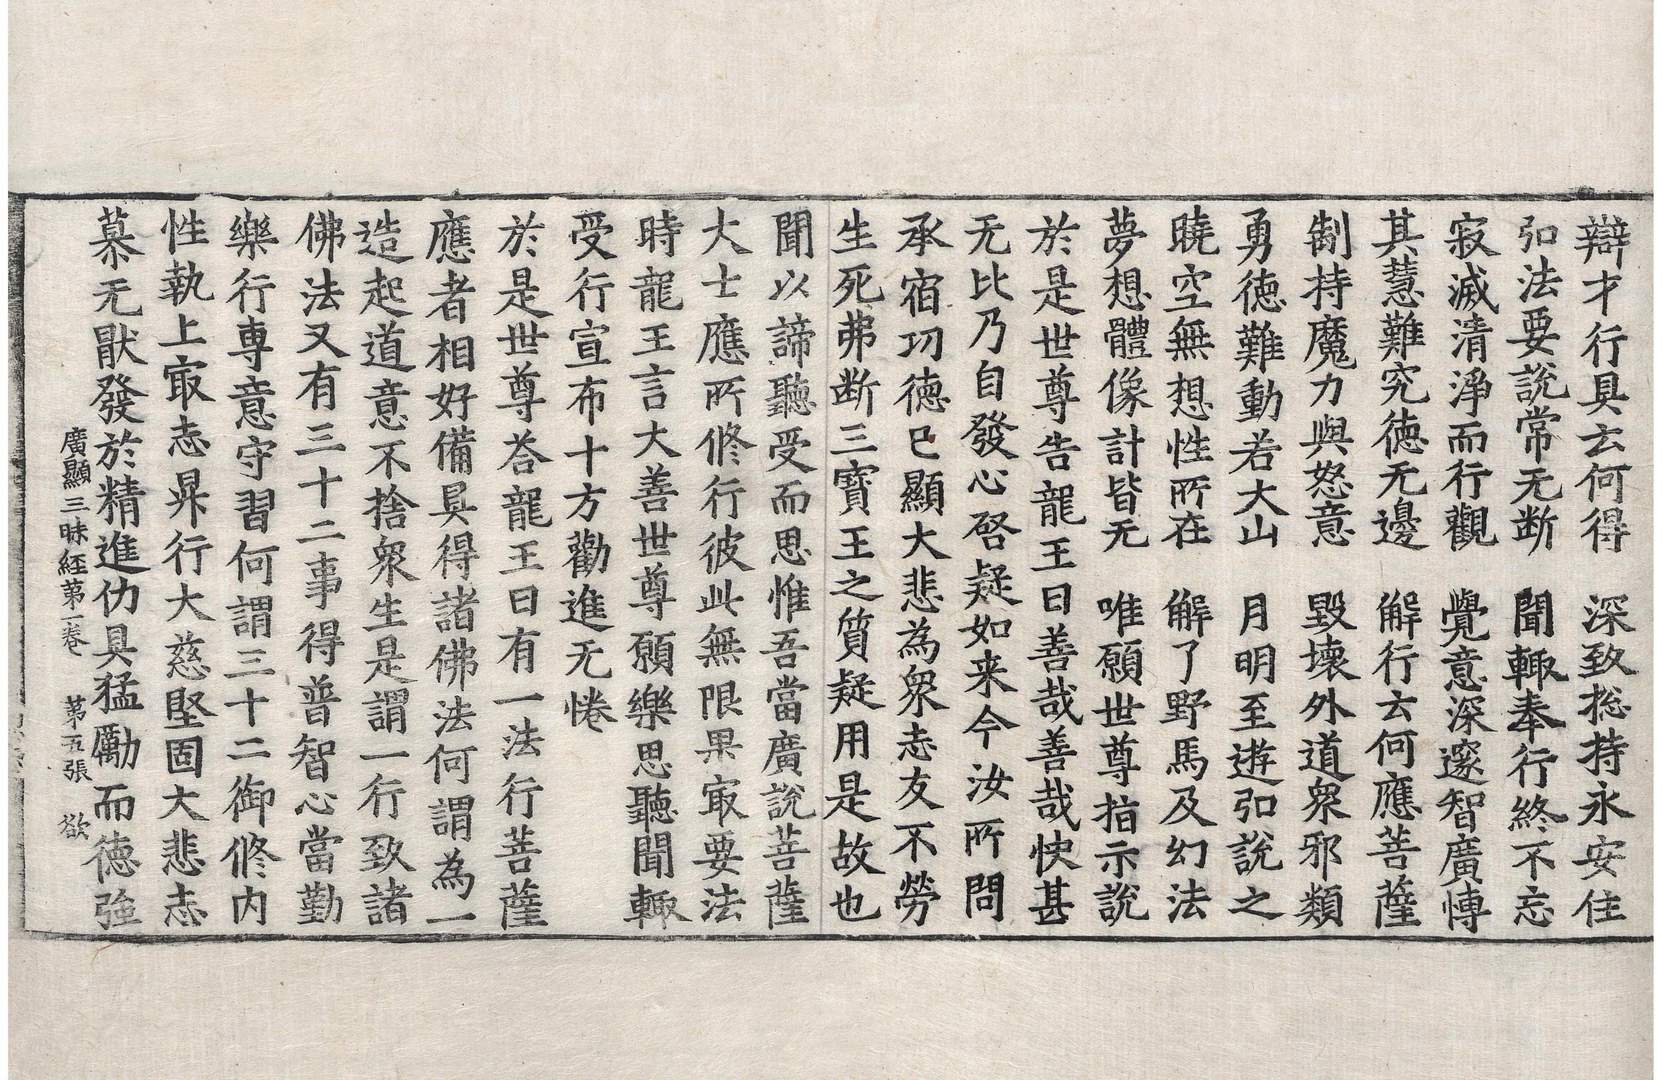 辯才行具云何得　深致捴持永安住
弘法要說常无断　聞輙奉行終不忘
寂滅清淨而行觀　覺意深邃智廣愽
其慧難究德无邊　解行云何應菩薩
制持魔力與怒意　毀壞外道衆邪類
勇德難動若大山　月明至遊弘說之
曉空無想性所在　解了野馬及幻法
夢想體像計皆无　唯願世尊指示說
於是世尊告龍王曰善哉善哉快甚
无比乃自發心啓疑如来今汝所問
承宿功德已顯大悲為衆志友不勞
生死弗断三寶王之質疑用是故也
聞以諦聽受而思惟吾當廣說菩薩
大士應所修行彼此無限果㝡要法
時龍王言大善世尊願樂思聽聞輙
受行宣布十方勸進无惓
於是世尊荅龍王曰有一法行菩薩
應者相好備具得諸佛法何謂為一
造起道意不捨衆生是謂一行致諸
佛法又有三十二事得普智心當勤
樂行專意守習何謂三十二御修内
性執上㝡志昇行大慈堅固大悲志
慕无猒發於精進仂具猛勵而德強
廣顯三昧経苐一卷　苐五張　欲